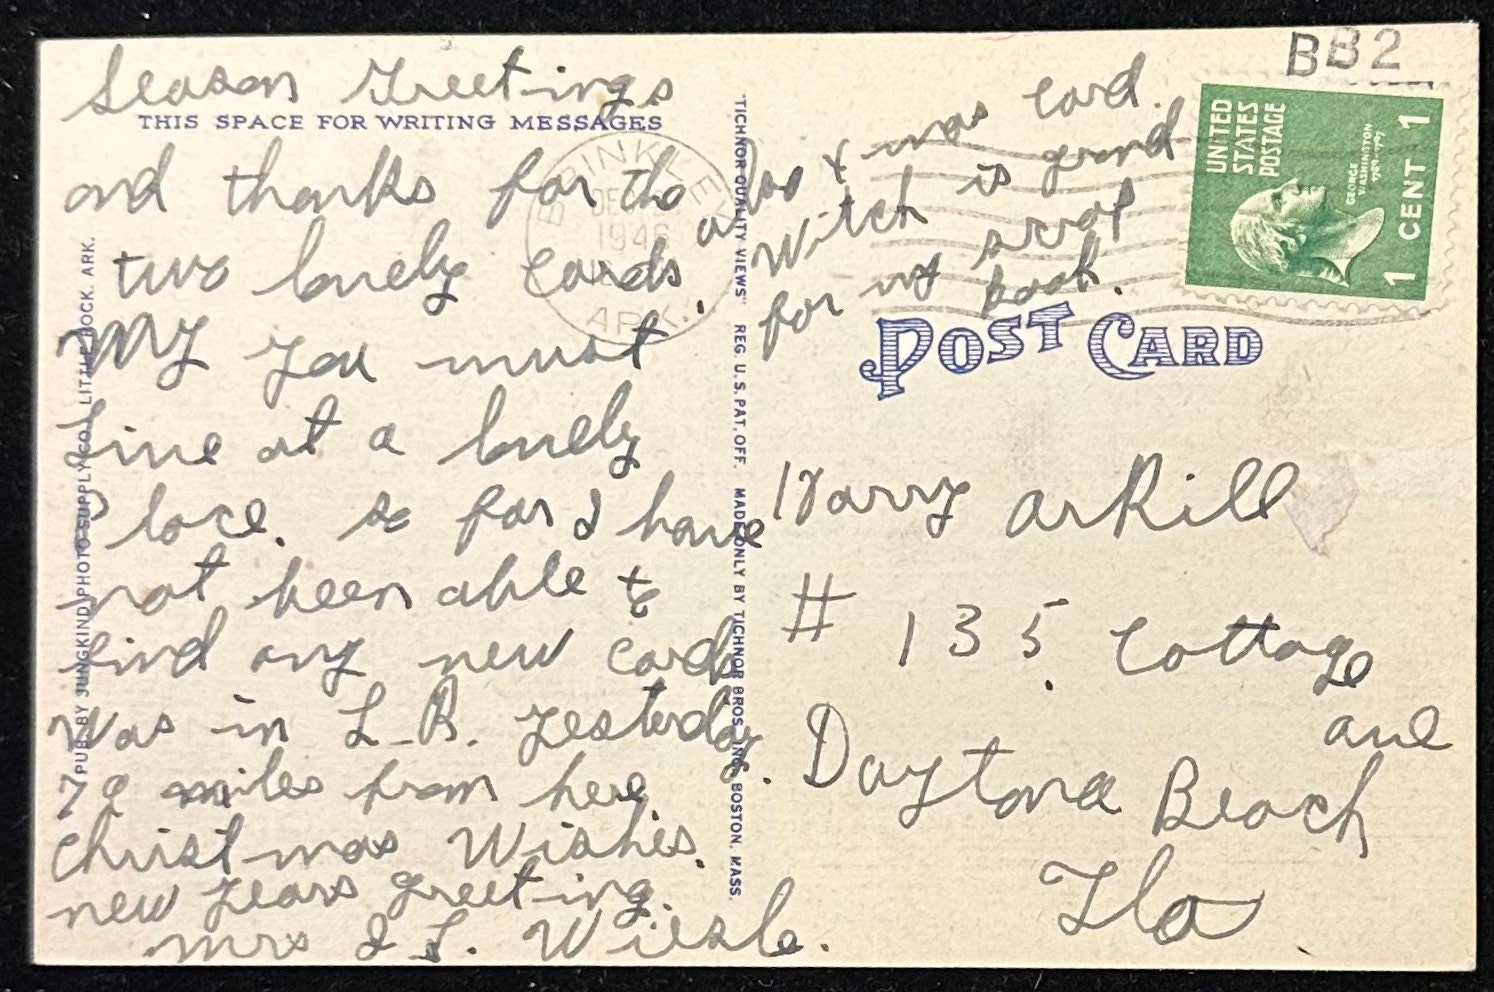 Season Greetings
THIS SPACE FOR WRITING MESSAGES
and thanks for the
two lovely cards.
My you must
Live at a lovely
Place. so far I have
not been able to
find any new cards
was in L.R. yesterday.
79 miles from here.
Christmas Wishes.
new years greeting.
mrs I L.
also xmas card.
Witch is grand
for my scrap
book.
PUB. BY JUNGKIND PHOTO SUPPLY CO., LITTLE ROCK, ARK.
"TICHNOR QUALITY VIEWS" REG. U.S. PAT. OFF. MADE ONLY BY TICHNOR BROS., INC., BOSTON, MASS.
BRINKLEY
DEC
1946
ARK.
BB2
UNITED
STATES
POSTAGE
GEORGE
WASHINGTON
1789-1797
1 CENT 1
POST CARD
Harry arkill
# 135 Cottage
ave
Daytona Beach
Fla